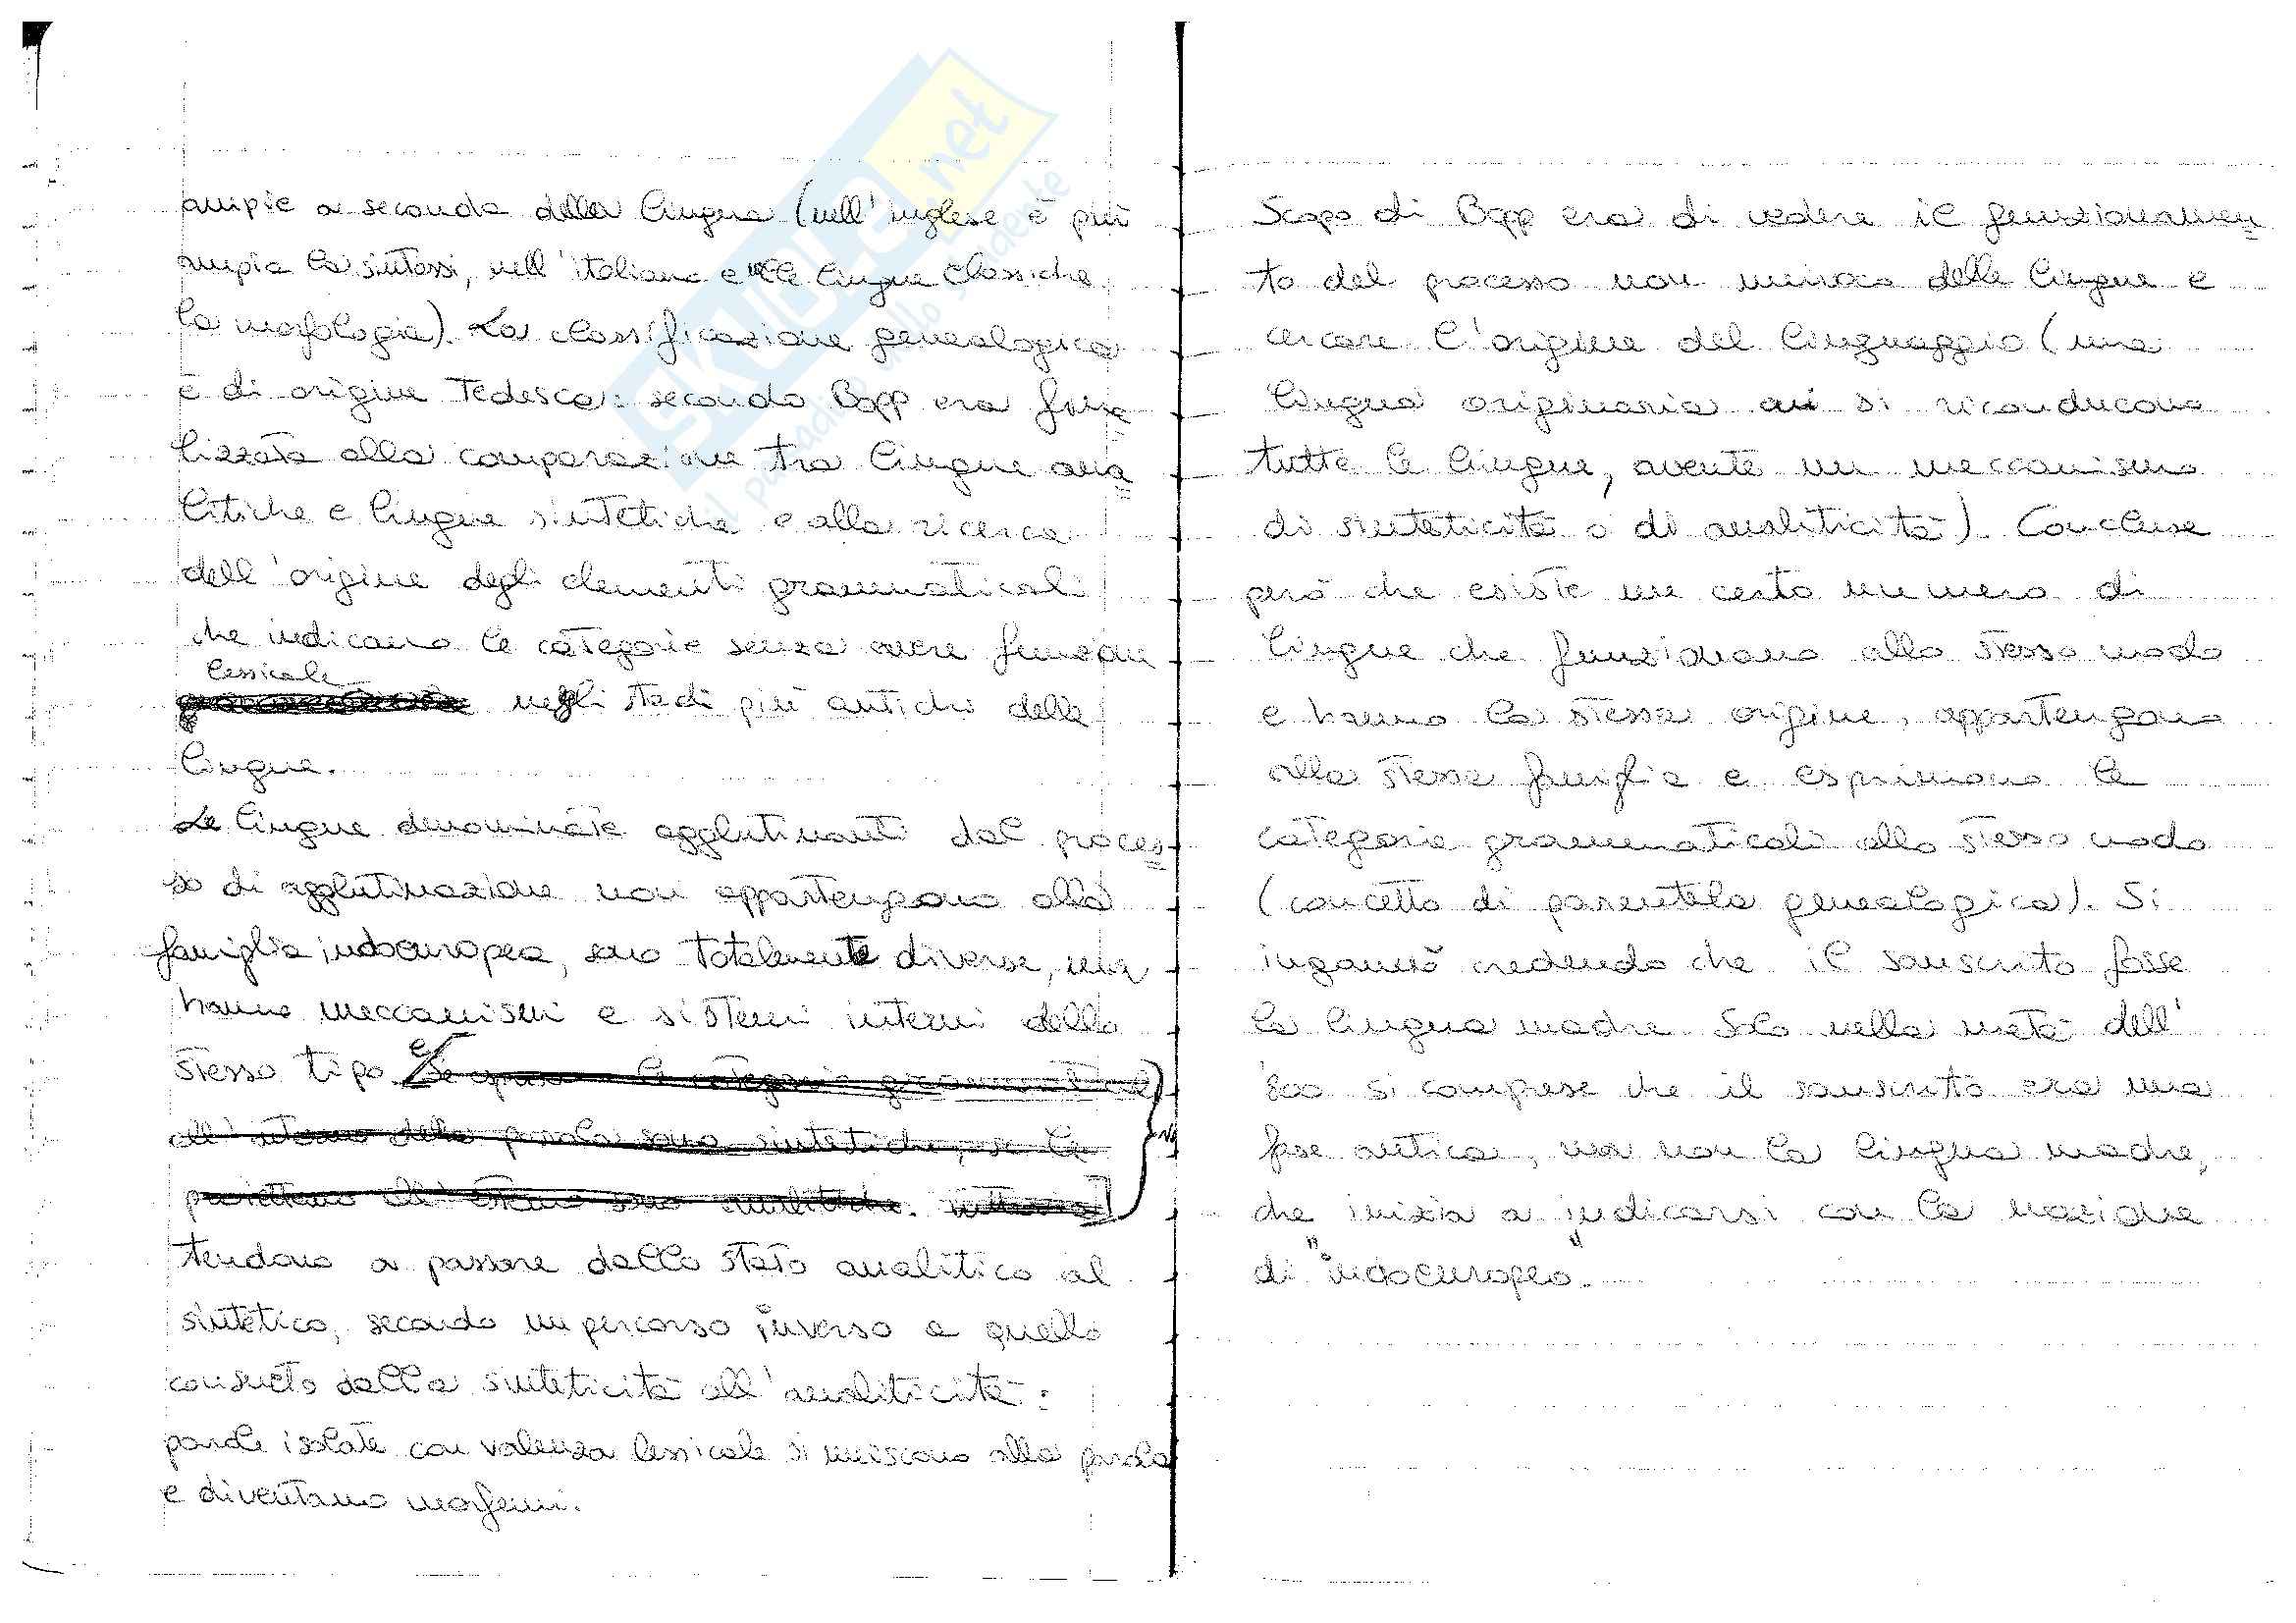 ampie a seconda della lingua (nell'inglese è più
ampia la sintassi, nell'italiano e nelle lingue classiche
la morfologia). La classificazione genealogica
è di origine tedesca: secondo Bopp era fina
lizzata alla comparazione tra lingue ana
litiche e lingue sintetiche e alla ricerca
dell'origine degli elementi grammaticali
che indicano le categorie senza avere funzione
lessicale
negli stadi più antichi delle
lingue.
Le lingue denominate agglutinanti dal proces
so di agglutinazione non appartengono alla
famiglia indoeuropea, sono totalmente diverse, ma
hanno meccanismi e sistemi interni dello
stesso tipo e
Se le categorie grammaticali
all'interno della parola sono sintetiche, se le
proiettano all'esterno sono analitiche. tuttavia] No
tendono a passare dallo stato analitico al
sintetico, secondo un percorso inverso a quello
consueto dalla sinteticità all'analiticità:
parole isolate con valenza lessicale si uniscono alla parola
e diventano morfemi.
Scopo di Bopp era di vedere il funzionamen
to del processo non mirava delle lingue e
cercare l'origine del linguaggio (una
lingua originaria cui si riconducono
tutte le lingue, avente un meccanismo
di sinteticità o di analiticità). Concluse
però che esiste un certo numero di
lingue che funzionano allo stesso modo
e hanno la stessa origine, appartengono
alla stessa famiglia e esprimono le
categorie grammaticali allo stesso modo
(concetto di parentela genealogica). Si
ingannò credendo che il sanscrito fosse
la lingua madre. Solo nella metà dell'
'800 si comprese che il sanscrito era una
fase antica, ma non la lingua madre,
che inizia a indicarsi con la nozione
di "indoeuropeo".
SKUOLA.net
il paradiso dello studente